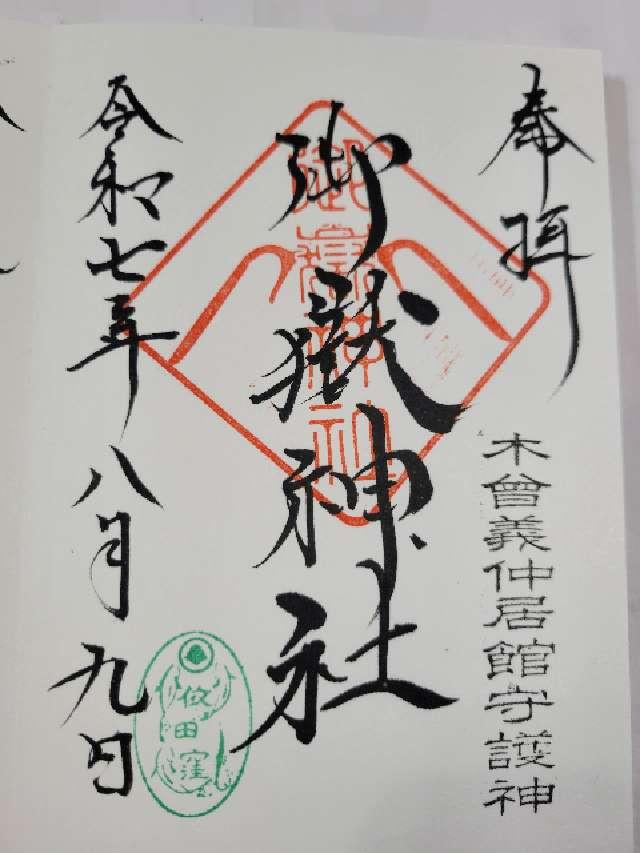 奉拝
木曽義仲居館守護神
御嶽神社
御嶽神社
令和七年八月九日
依田窪